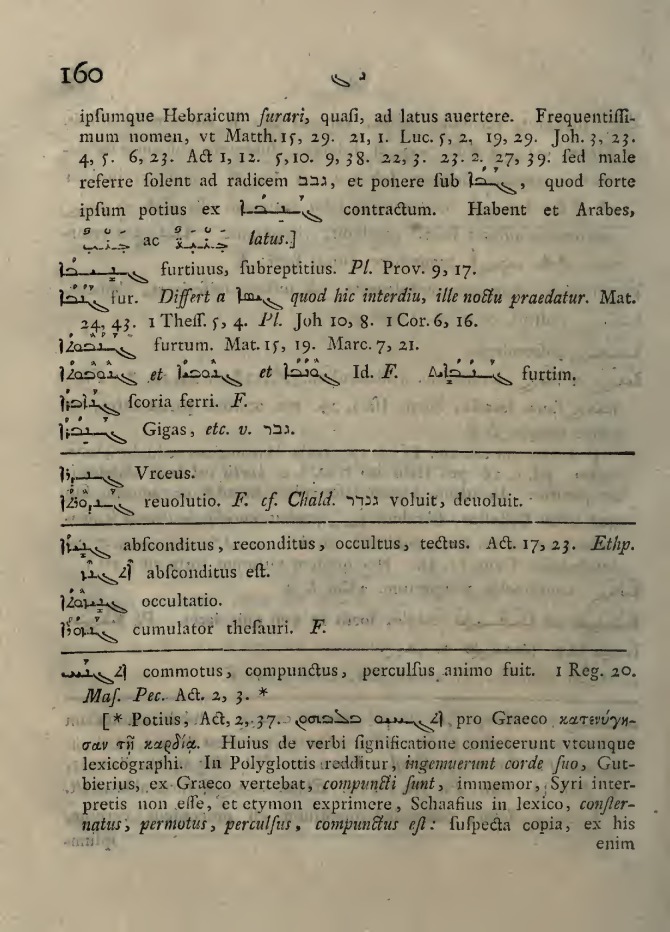 160 ܓ ܢ
ipſumque Hebraicum furari, quaſi, ad latus auertere. Frequentiſſi-
mum nomen, vt Matth. 15, 29. 21, 1. Luc. 5, 2, 19, 29. Joh. 3, 23.
4, 5. 6, 23. Act 1, 12. 5, 10. 9, 38. 22, 3. 23. 2. 27, 39. ſed male
referre ſolent ad radicem גבב, et ponere ſub ܓܒܐ, quod forte
ipſum potius ex ܓܢܒܐ contractum. Habent et Arabes,
ac latus.]
furtiuus, ſubreptitius. Pl. Prov. 9, 17.
ܓܢܒܐ fur. Differt a quod hic interdiu, ille noctu praedatur. Mat.
24, 43. 1 Theſſ. 5, 4. Pl. Joh 10, 8. 1 Cor. 6, 16.
furtum. Mat. 15, 19. Marc. 7, 21.
et et Id. F. furtim.
ſcoria ferri. F.
ܓܢܒܪܐ Gigas, etc. v. גבר.
Vrceus.
reuolutio. F. cf. Chald. גנדר voluit, deuoluit.
abſconditus, reconditus, occultus, tectus. Act. 17, 23. Ethp.
abſconditus eſt.
occultatio.
cumulator theſauri. F.
commotus, compunctus, perculſus animo fuit. 1 Reg. 20.
Maſ. Pec. Act. 2, 3. *
[* Potius, Act, 2, 37. pro Graeco κατενύγη-
σαν τῇ καρδίᾳ. Huius de verbi ſignificatione coniecerunt vtcunque
lexicographi. In Polyglottis redditur, ingemuerunt corde ſuo, Gut-
bierius, ex Graeco vertebat, compuncti ſunt, immemor, Syri inter-
pretis non eſſe, et etymon exprimere, Schaafius in lexico, conſter-
natus, permotus, perculſus, compunctus eſt: ſuſpecta copia, ex his
enim